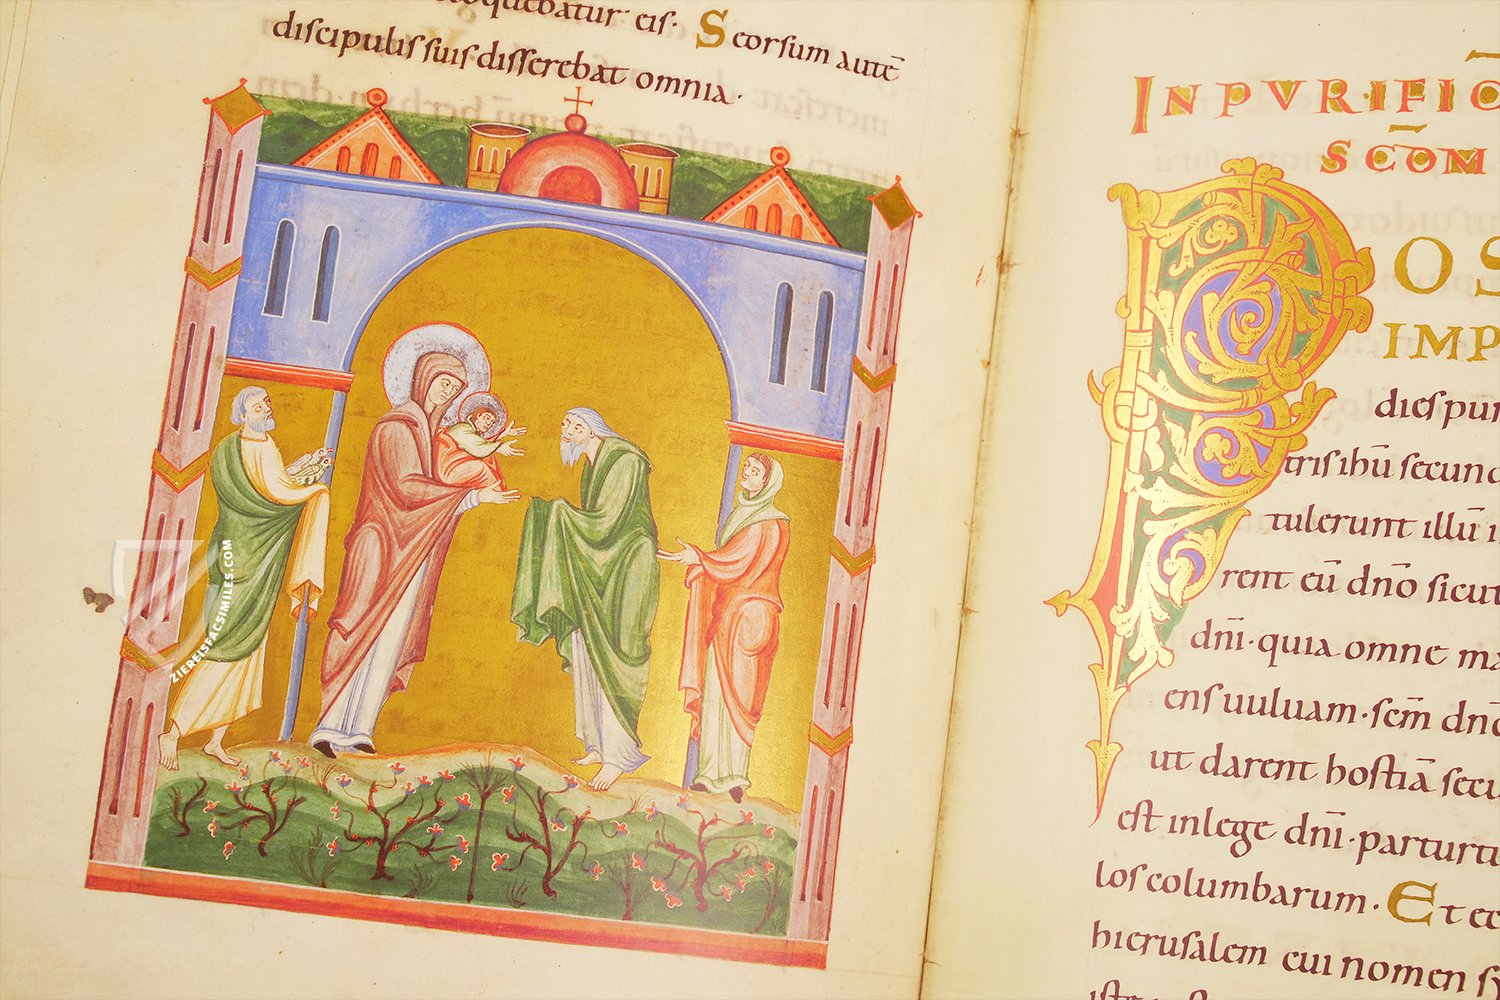 loquebatur eis· Scorsum autē
discipulis suis disserebat omnia·
ZIEREISFACSIMILES.COM
INPVRIFIC
SCŌM
POS
IMP
dies pur
tris ihū secund
tulerunt illū i
rent eū dn̄o sicut
dn̄i·quia omne ma
ens uuluam·scm̄ dn̄o
ut darent hostiā secu
est inlege dn̄i·parturtu
los columbarum·Et ec
hierusalem cui nomen sy
iste